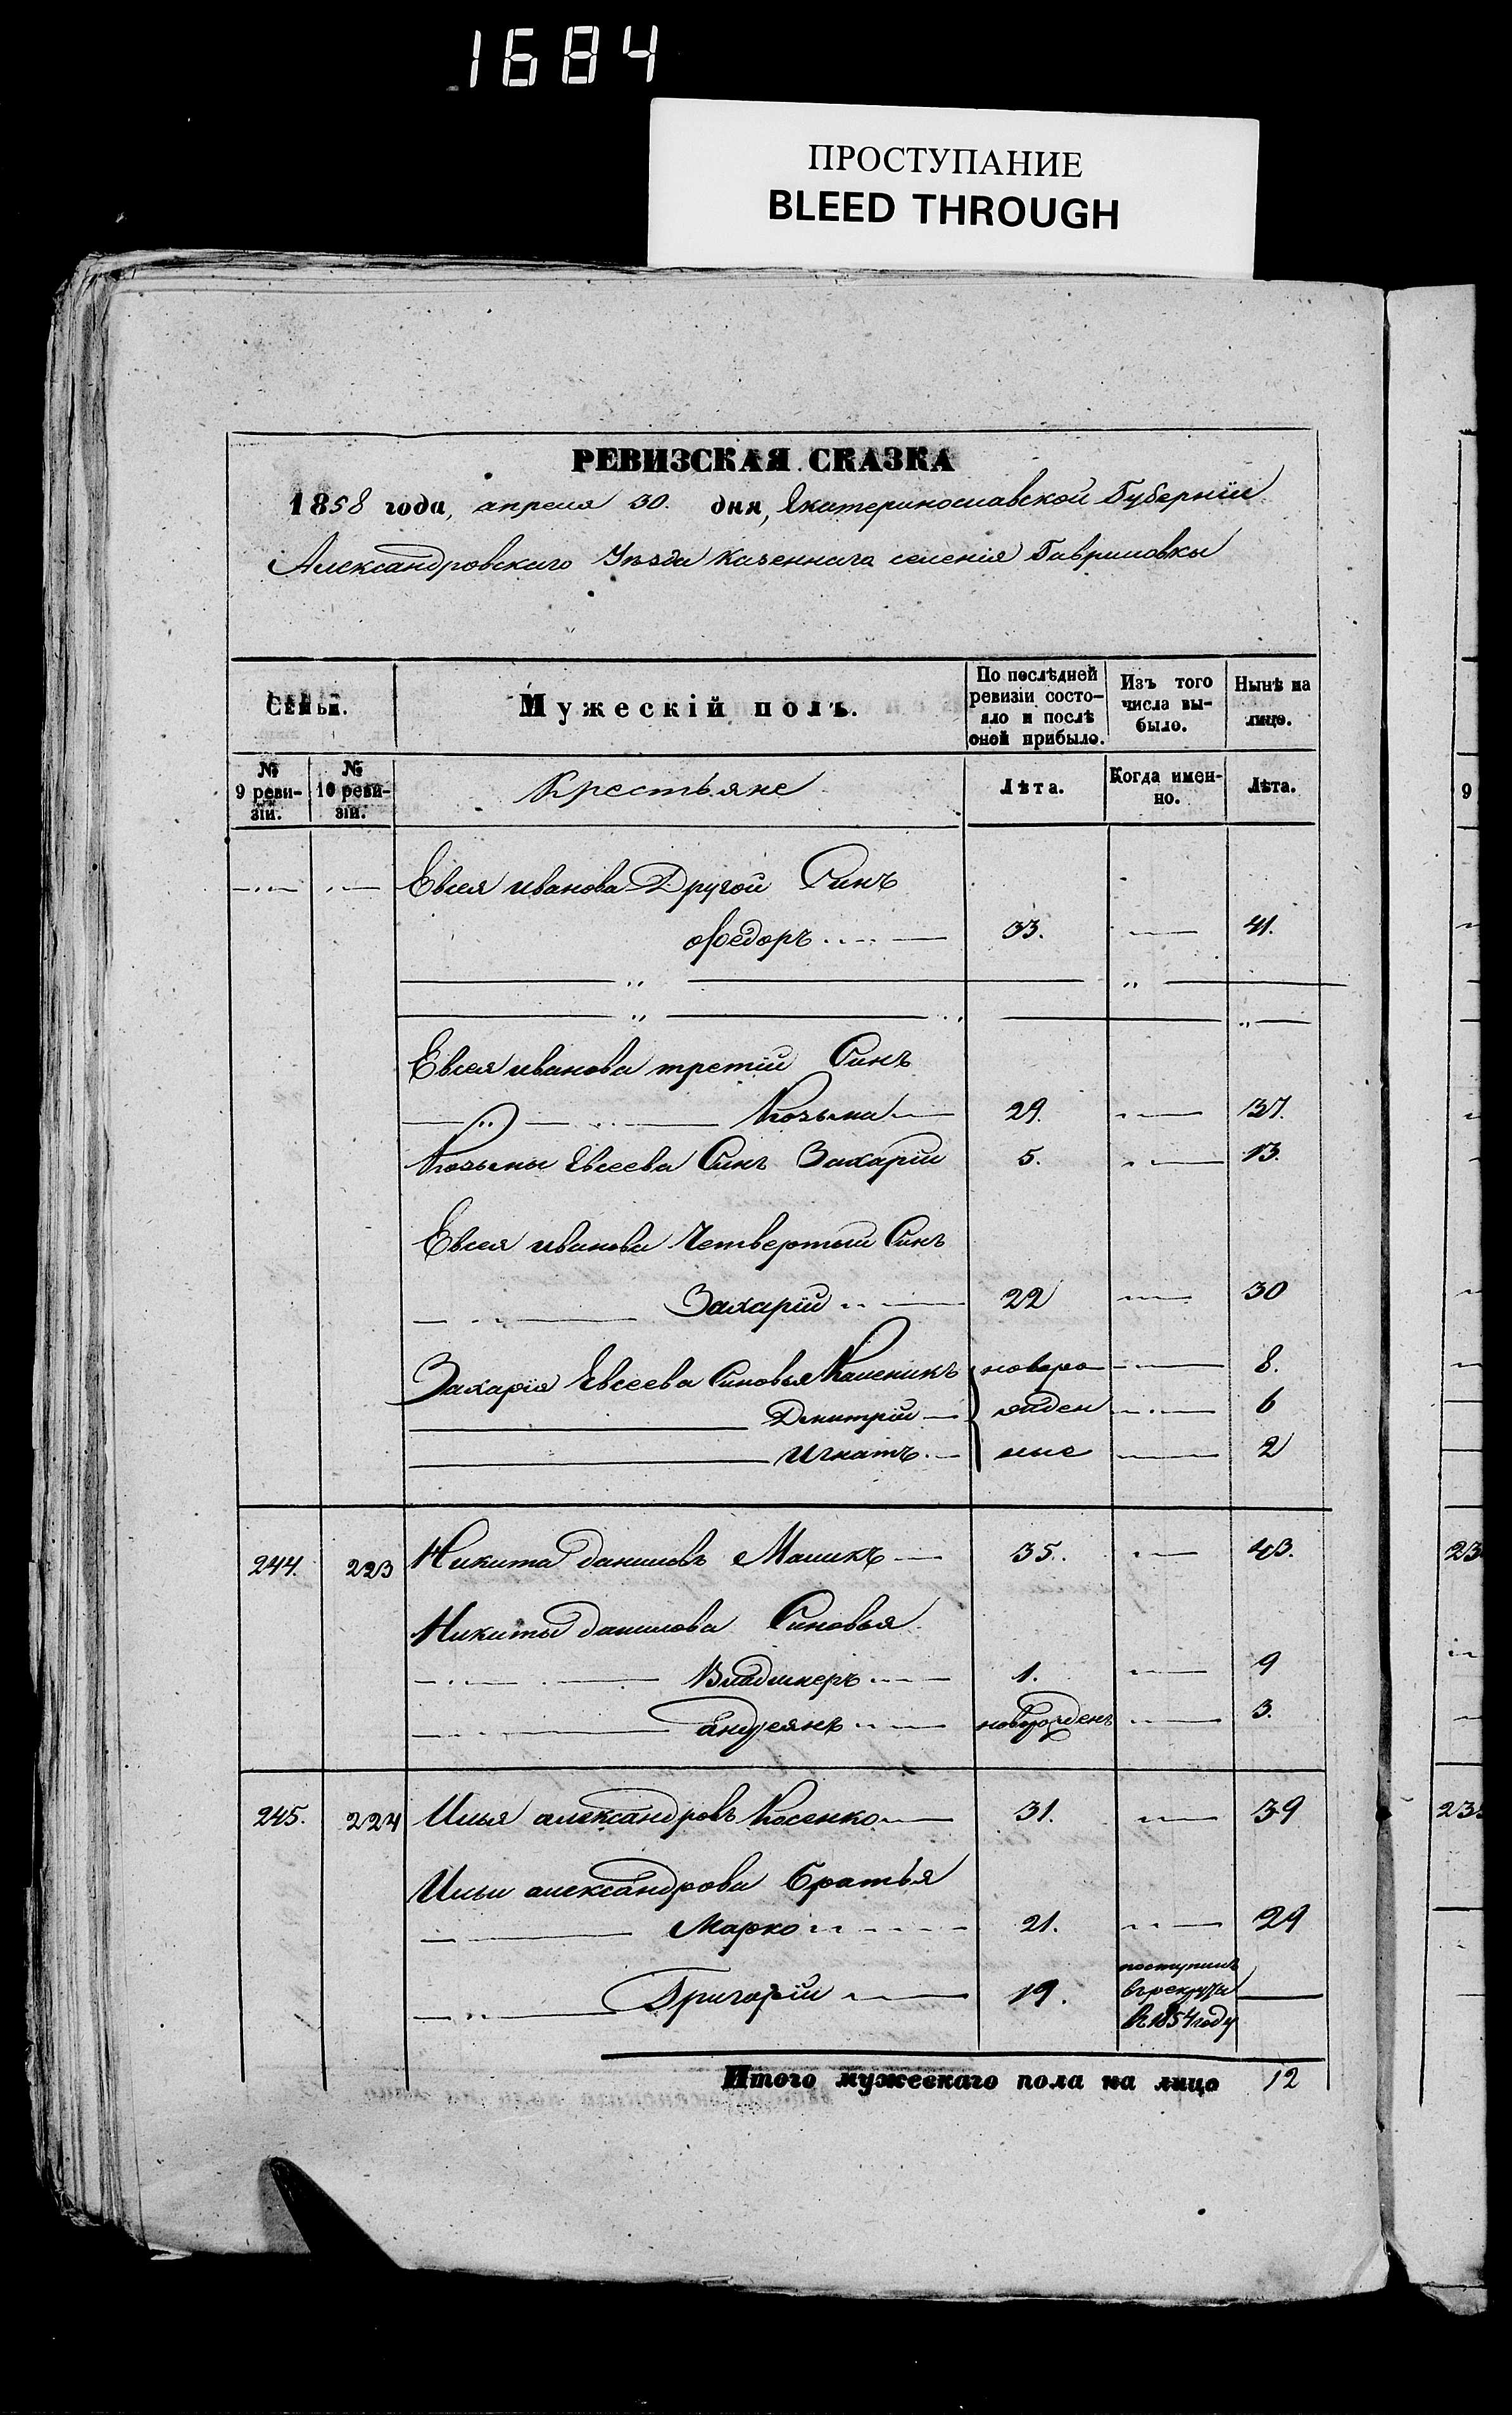 1684
ПРОСТУПАНИЕ
BLEED THROUGH
РЕВИЗСКАЯ СКАЗКА
1858 года, апреля 30. дня, Екатеринославской Губерніи
Александровскаго Уѣзда казеннаго селенія Гавриловки
Семьи. Мужескій полъ. По послѣдней ревизіи состояло и послѣ оной прибыло. Изъ того числа выбыло. Нынѣ на лицо.
№ 9 ревизіи. № 10 ревизіи. Крестьяне Лѣта. Когда именно. Лѣта.
Евсея иванова Другой Синъ
Федоръ 33. 41.
Евсея иванова третій Синъ
Козьма 29. 37.
Козьмы Евсеева Синъ Захарій 5. 13.
Евсея иванова Четвертой Синъ
Захарій 22 30
Захарія Евсеева Синовья Каленикъ новоро 8.
Дмитрій жден 6
Игнатъ ные 2
244. 223 Никита даниловъ Маликъ 35. 43.
Никиты данилова Синовья
Владимеръ 1. 9
андреянъ новорожденъ 3.
245. 224 Илья александровъ Косенко 31. 39
Ильи александрова братья
Марко 21. 29
Григорій 19. поступилъ
в рекруты
в 1854 году
Итого мужескаго пола на лицо 12
9